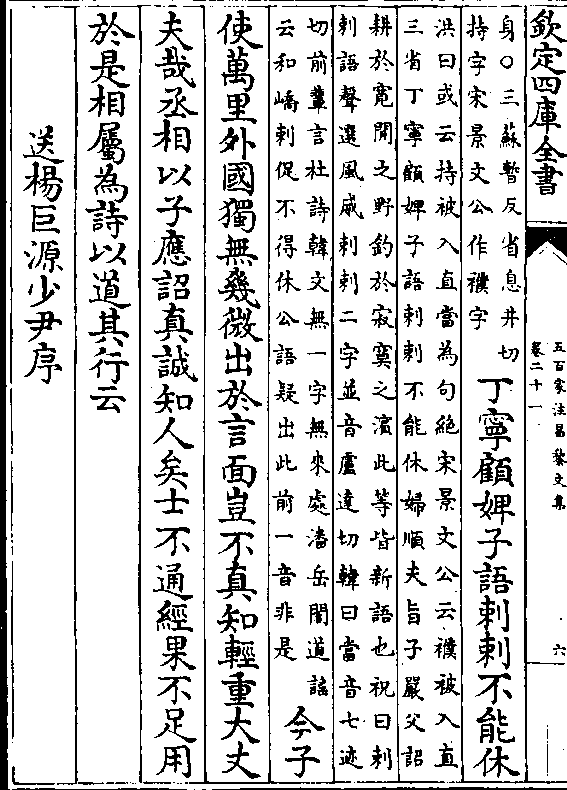 欽定四庫全書
五百家注昌黎文集
卷二十一
六
身○三蘇暫反省息井切
持字宋景文公作襆字
丁寧顧婢子語刺刺不能休
洪曰或云持被入直當為句絶宋景文公云襆被入直
三省丁寧顧婢子語刺刺不能休婦順夫旨子嚴父詔
耕於寛閒之野釣於寂寞之濱此等皆新語也祝曰刺
刺語聲選風威刺刺二字並音盧達切韓曰當音七迹
切前輩言杜詩韓文無一字無來處潘岳閣道謡
云和嶠刺促不得休公語疑出此前一音非是
今子
使萬里外國獨無幾微出於言面豈不真知輕重大丈
夫哉丞相以子應詔真誠知人矣士不通經果不足用
於是相屬為詩以道其行云
送楊巨源少尹序